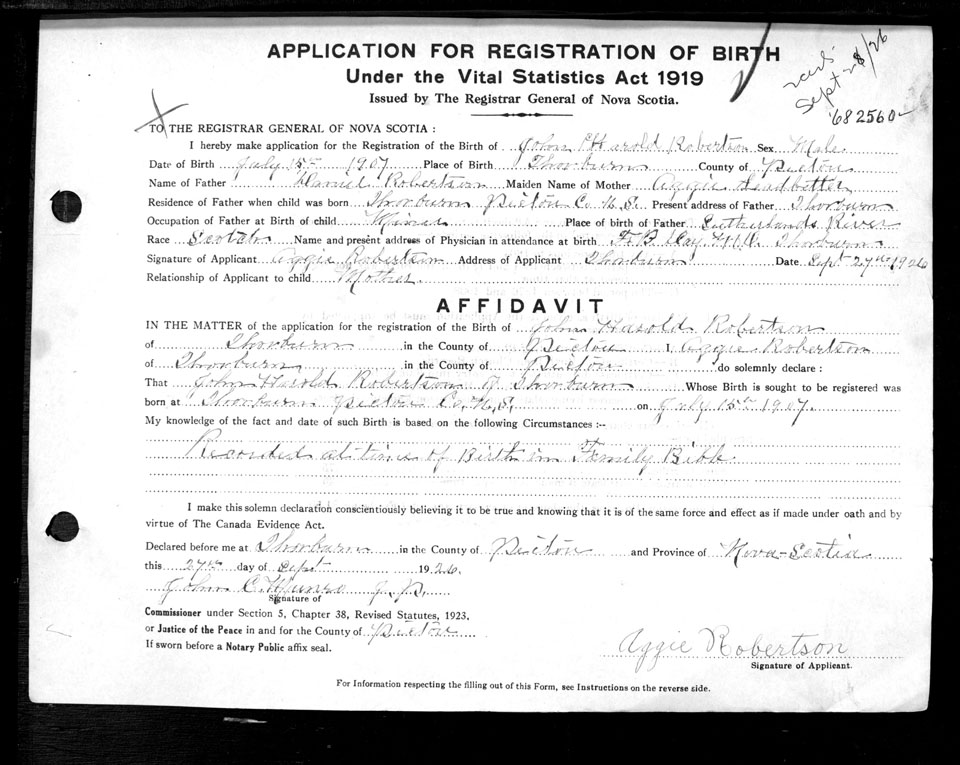 APPLICATION FOR REGISTRATION OF BIRTH
Under the Vital Statistics Act 1919
Issued by The Registrar General of Nova Scotia.
Sept 28/26
682560
TO THE REGISTRAR GENERAL OF NOVA SCOTIA :
I hereby make application for the Registration of the Birth of John Harold Robertson Sex Male
Date of Birth July 15th 1907 Place of Birth Thorburn County of Pictou
Name of Father Daniel Robertson Maiden Name of Mother Aggie Leadbetter
Residence of Father when child was born Thorburn Pictou Co N.S. Present address of Father Thorburn
Occupation of Father at Birth of child Miner Place of birth of Father Sutherlands River
Race Scotch Name and present address of Physician in attendance at birth F. B. Day M.D. Thorburn
Signature of Applicant Aggie Robertson Address of Applicant Thorburn Date Sept 27th 1926
Relationship of Applicant to child Mother
AFFIDAVIT
IN THE MATTER of the application for the registration of the Birth of John Harold Robertson
of Thorburn in the County of Pictou I, Aggie Robertson
of Thorburn in the County of Pictou do solemnly declare :
That John Harold Robertson of Thorburn Whose Birth is sought to be registered was
born at Thorburn Pictou Co. N.S. on July 15th 1907.
My knowledge of the fact and date of such Birth is based on the following Circumstances :--
Recorded at time of Birth in Family Bible.
I make this solemn declaration conscientiously believing it to be true and knowing that it is of the same force and effect as if made under oath and by
virtue of The Canada Evidence Act.
Declared before me at Thorburn in the County of Pictou and Province of Nova-Scotia
this 27th day of Sept 1926.
John C. Munro J.P.
Signature of
Commissioner under Section 5, Chapter 38, Revised Statutes, 1923,
or Justice of the Peace in and for the County of Pictou
If sworn before a Notary Public affix seal.
Aggie Robertson
Signature of Applicant.
For Information respecting the filling out of this Form, see Instructions on the reverse side.